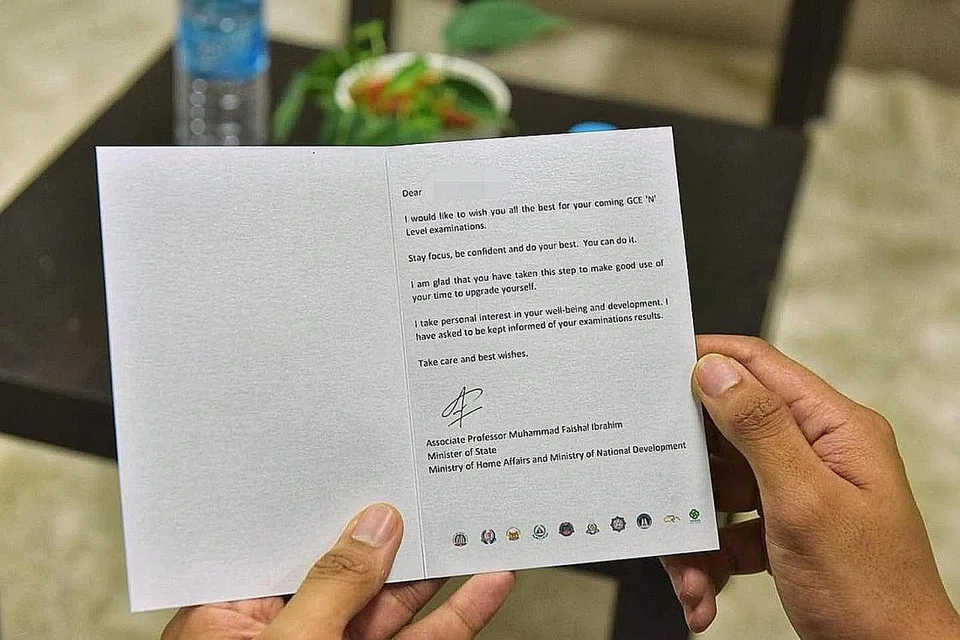 Dear
I would like to wish you all the best for your coming GCE 'N'
Level examinations.
Stay focus, be confident and do your best. You can do it.
I am glad that you have taken this step to make good use of
your time to upgrade yourself.
I take personal interest in your well-being and development. I
have asked to be kept informed of your examinations results.
Take care and best wishes.
Associate Professor Muhammad Faishal Ibrahim
Minister of State
Ministry of Home Affairs and Ministry of National Development